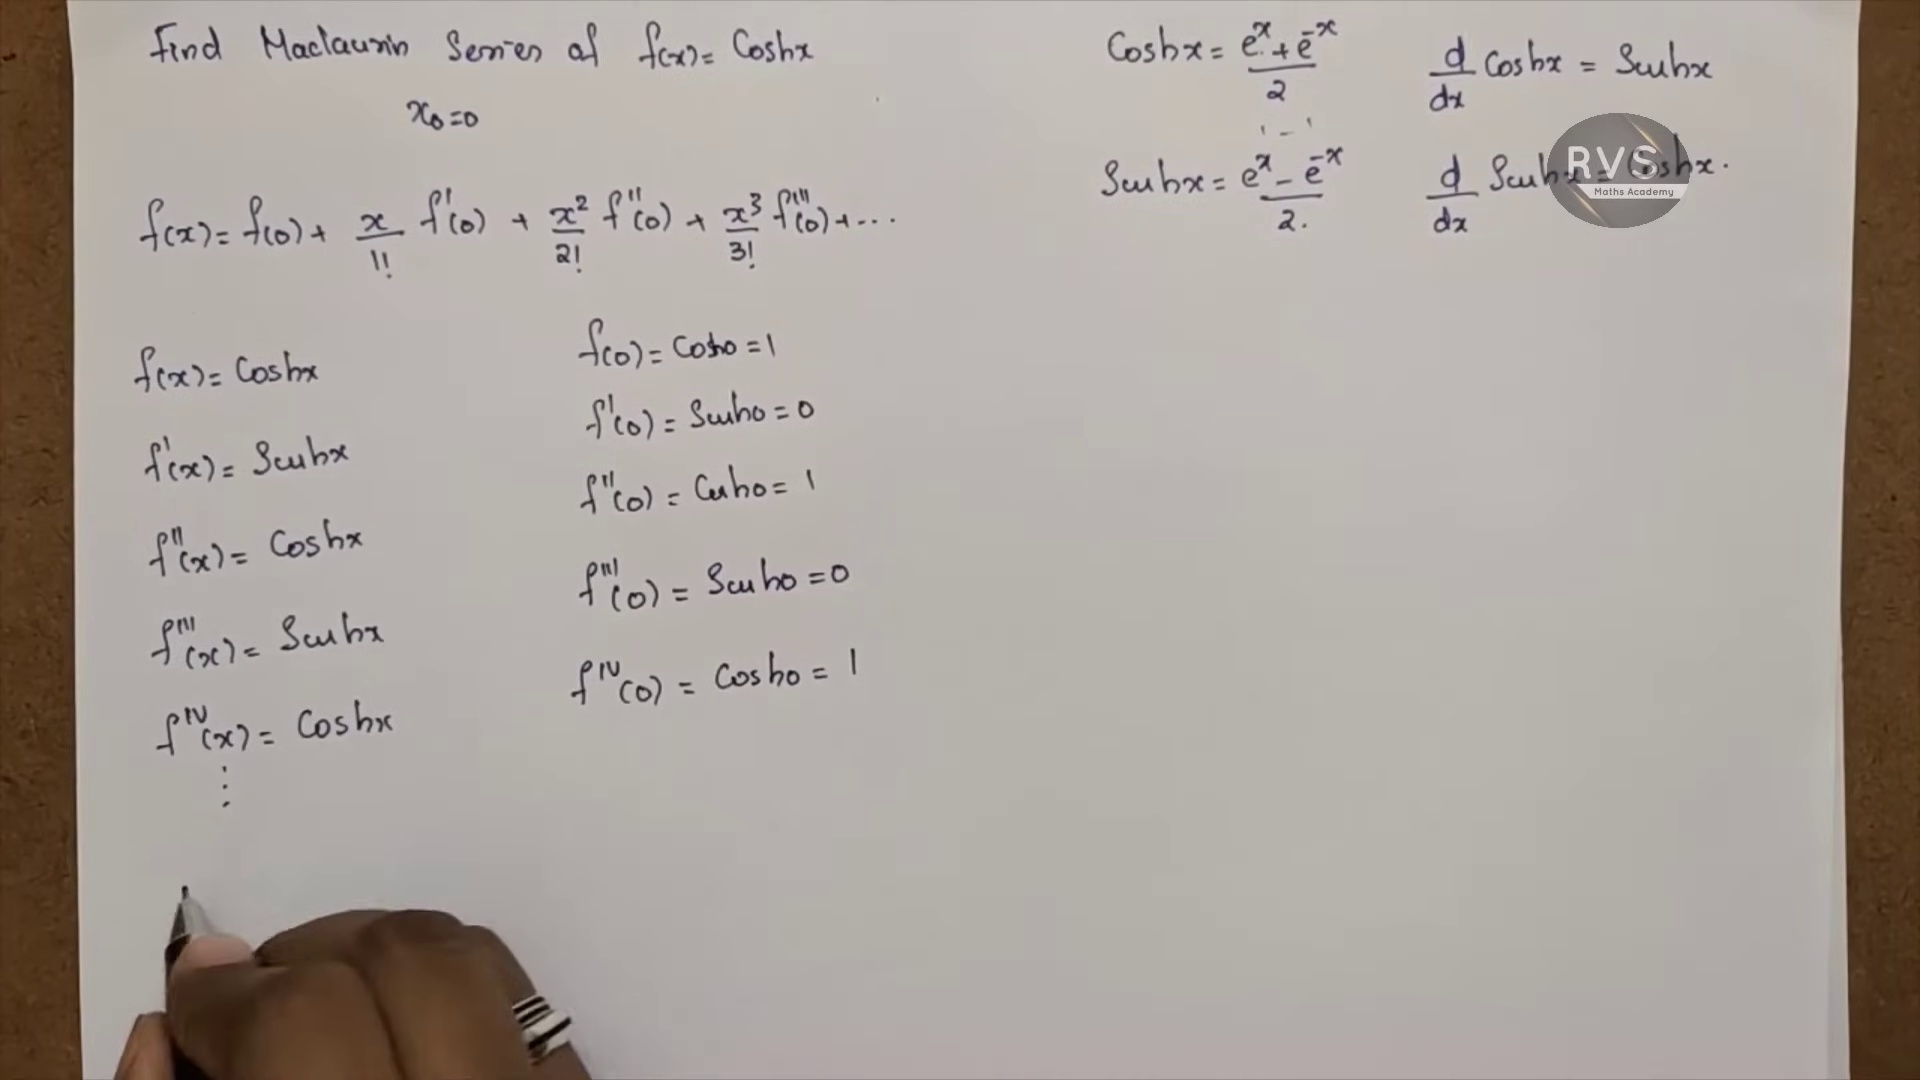 Find Maclaurin Series of f(x) = Coshx
x₀ = 0
f(x) = f(0) + x/1! f'(0) + x²/2! f''(0) + x³/3! f'''(0) + ...
f(x) = Coshx
f'(x) = Sinhx
f''(x) = Coshx
f'''(x) = Sinhx
f^IV(x) = Coshx
⋮
f(0) = Cosh0 = 1
f'(0) = Sinh0 = 0
f''(0) = Cosh0 = 1
f'''(0) = Sinh0 = 0
f^IV(0) = Cosh0 = 1
Coshx = (e^x + e^-x)/2
Sinhx = (e^x - e^-x)/2.
d/dx Coshx = Sinhx
d/dx Sinhx = Coshx.
RVS
Maths Academy